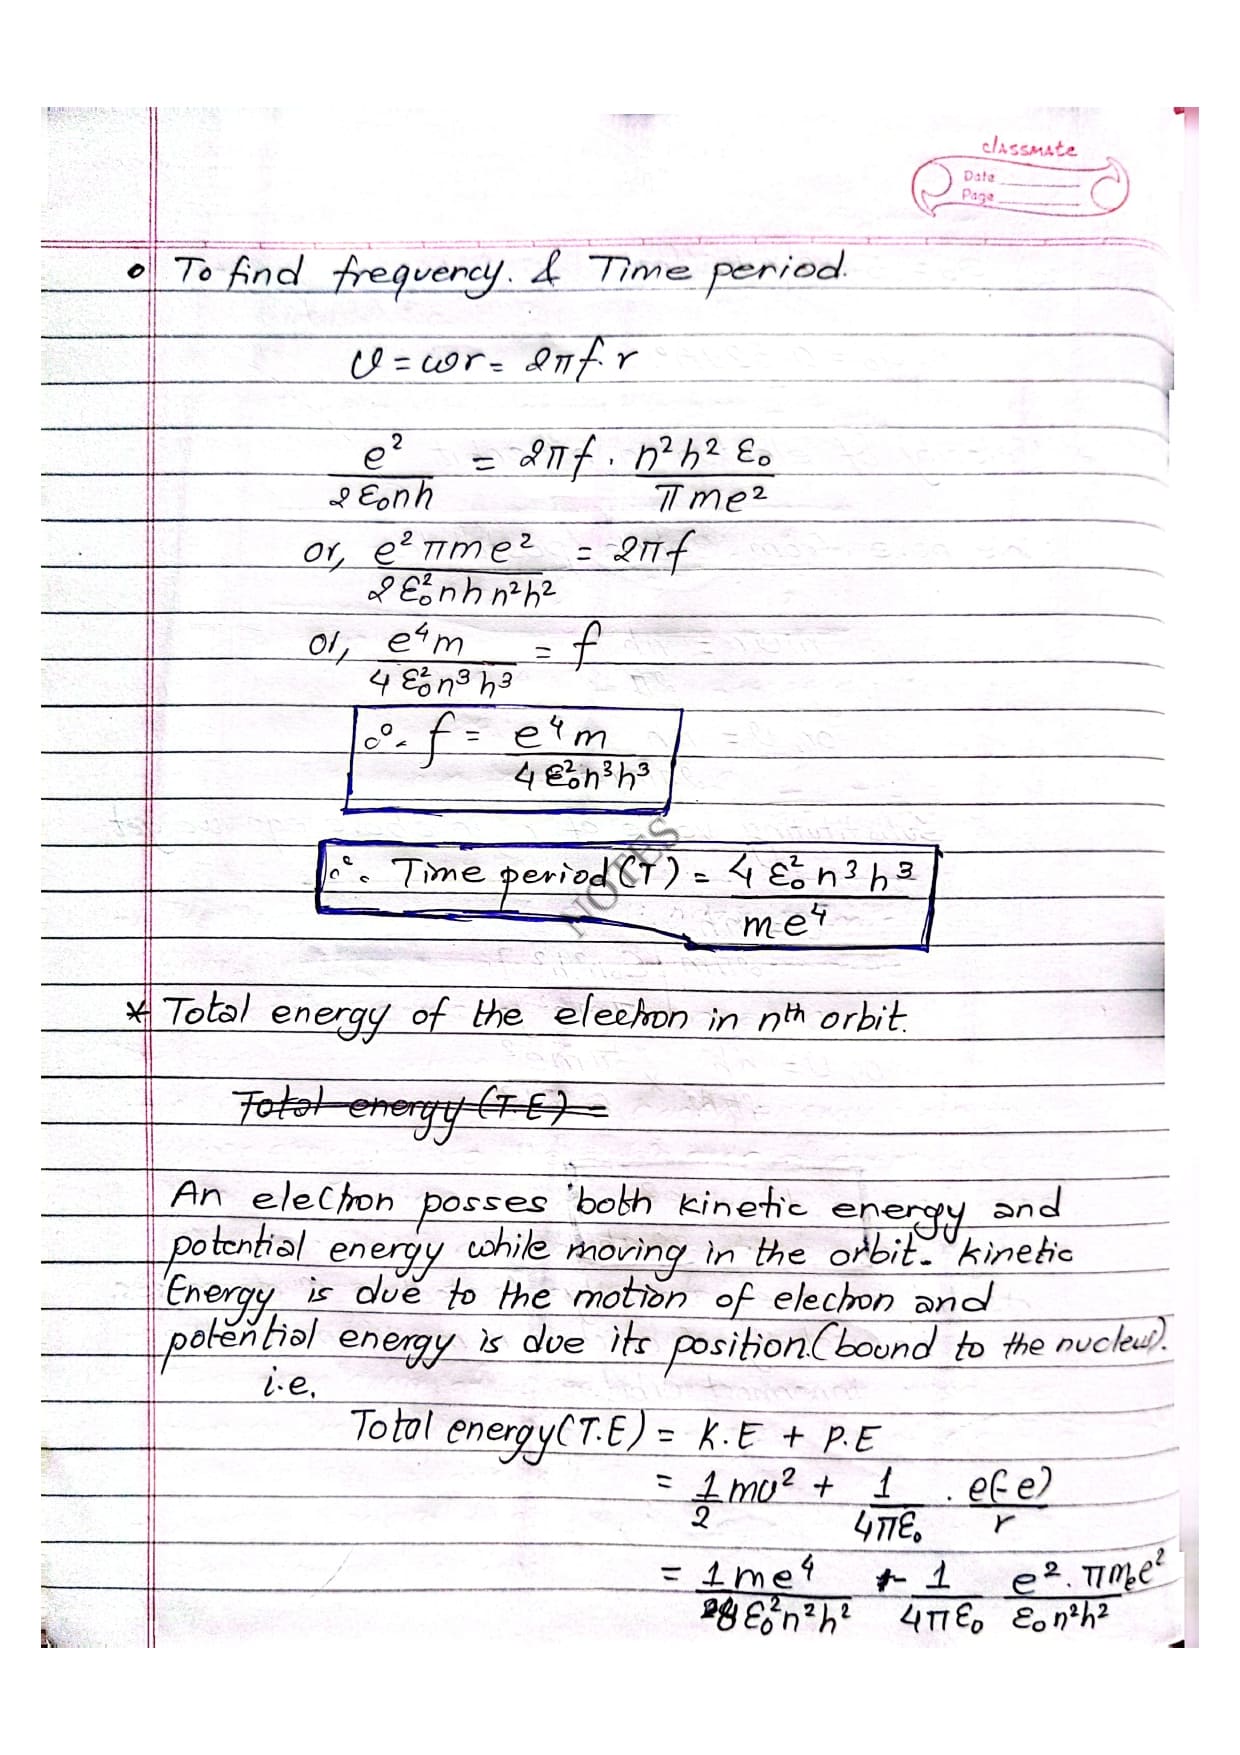 classmate
Date
Page
To find frequency. & Time period.
v = ωr = 2πf.r
e² / 2ε₀nh = 2πf . n²h²ε₀ / πme²
or, e²πme² / 2ε₀²nhn²h² = 2πf
or, e⁴m / 4ε₀²n³h³ = f
∴ f = e⁴m / 4ε₀²n³h³
∴ Time period (T) = 4ε₀²n³h³ / me⁴
NOTES
* Total energy of the electron in nth orbit.
Total energy (T.E) =
An electron posses both kinetic energy and
potential energy while moving in the orbit. kinetic
Energy is due to the motion of electron and
potential energy is due its position. (bound to the nucleus).
i.e.
Total energy (T.E) = K.E + P.E
= 1/2 mv² + 1/4πε₀ . e(-e)/r
= 1me⁴ / 8ε₀²n²h² - 1/4πε₀ e².πme² / ε₀n²h²